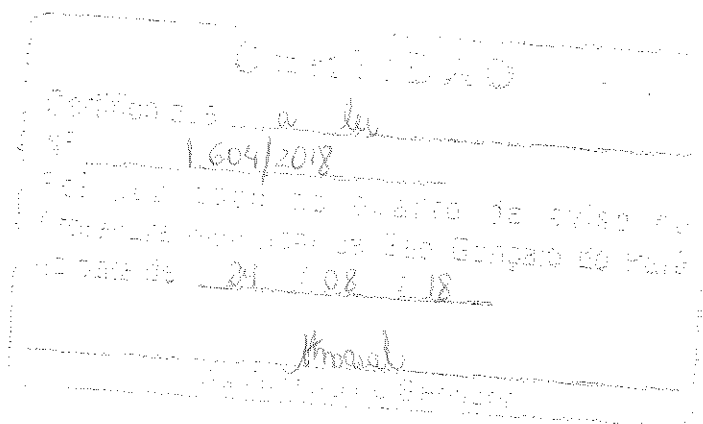 CERTIDÃO
Certifico que a lei
Nº 1.604/2018
Foi publicada no quadro de aviso da
Prefeitura Municipal de São Gonçalo do Pará
na data de 24 / 08 / 18